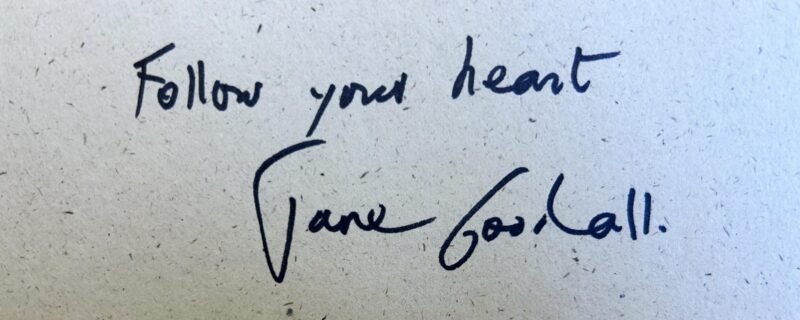 Follow your heart
Jane Goodall.